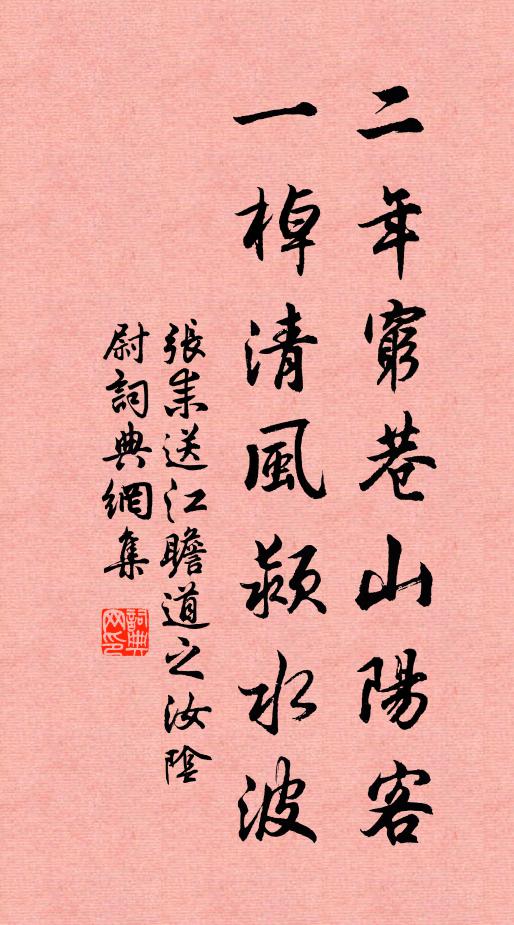 二年窮巷山陽客
一棹清風潁水波
張耒送江瞻道之汝陰
尉詞典網集
詞典
网印